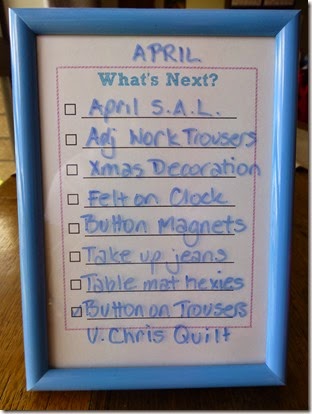 APRIL
What's Next?
April S.A.L.
Adj Work Trousers
Xmas Decoration
Felt on Clock
Button Magnets
Take up jeans
Table mat hexies
Button on Trousers
V. Chris Quilt